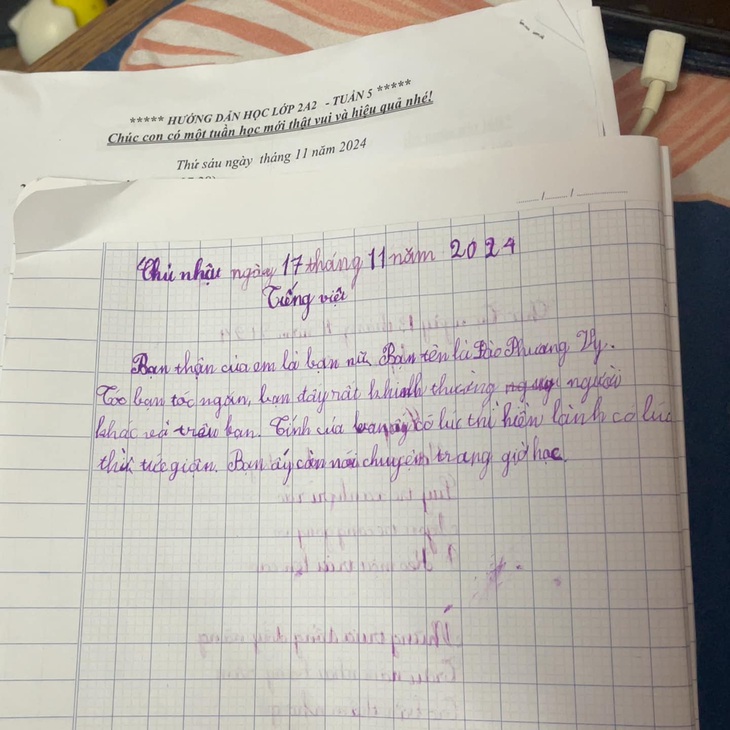 ***** HƯỚNG DẪN HỌC LỚP 2A2 - TUẦN 5 *****
Chúc con có một tuần học mới thật vui và hiệu quả nhé!
Thứ sáu ngày tháng 11 năm 2024
Chủ nhật ngày 17 tháng 11 năm 2024
Tiếng việt
Bạn thân của em là bạn nữ. Bạn tên là Đào Phương Vy.
Tóc bạn tóc ngắn, bạn đấy rất khinh thường người
khác và trêu bạn. Tính của bạn ấy có lúc thì hiền lành có lúc
thì tức giận. Bạn ấy còn nói chuyện trong giờ học